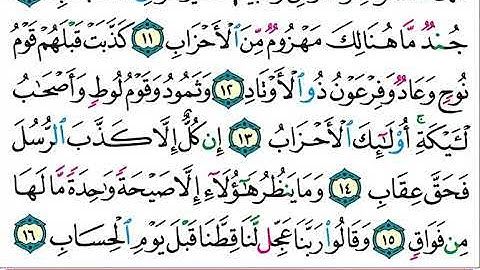 جُندٌ مَّا هُنَالِكَ مَهْزُومٌ مِّنَ ٱلْأَحْزَابِ ١١ كَذَّبَتْ قَبْلَهُمْ قَوْمُ
نُوحٍ وَعَادٌ وَفِرْعَوْنُ ذُو ٱلْأَوْتَادِ ١٢ وَثَمُودُ وَقَوْمُ لُوطٍ وَأَصْحَٰبُ
لْـَٔيْكَةِ ۚ أُو۟لَٰٓئِكَ ٱلْأَحْزَابُ ١٣ إِن كُلٌّ إِلَّا كَذَّبَ ٱلرُّسُلَ
فَحَقَّ عِقَابِ ١٤ وَمَا يَنظُرُ هَٰٓؤُلَآءِ إِلَّا صَيْحَةً وَٰحِدَةً مَّا لَهَا
مِن فَوَاقٍ ١٥ وَقَالُوا۟ رَبَّنَا عَجِّل لَّنَا قِطَّنَا قَبْلَ يَوْمِ ٱلْحِسَابِ ١٦